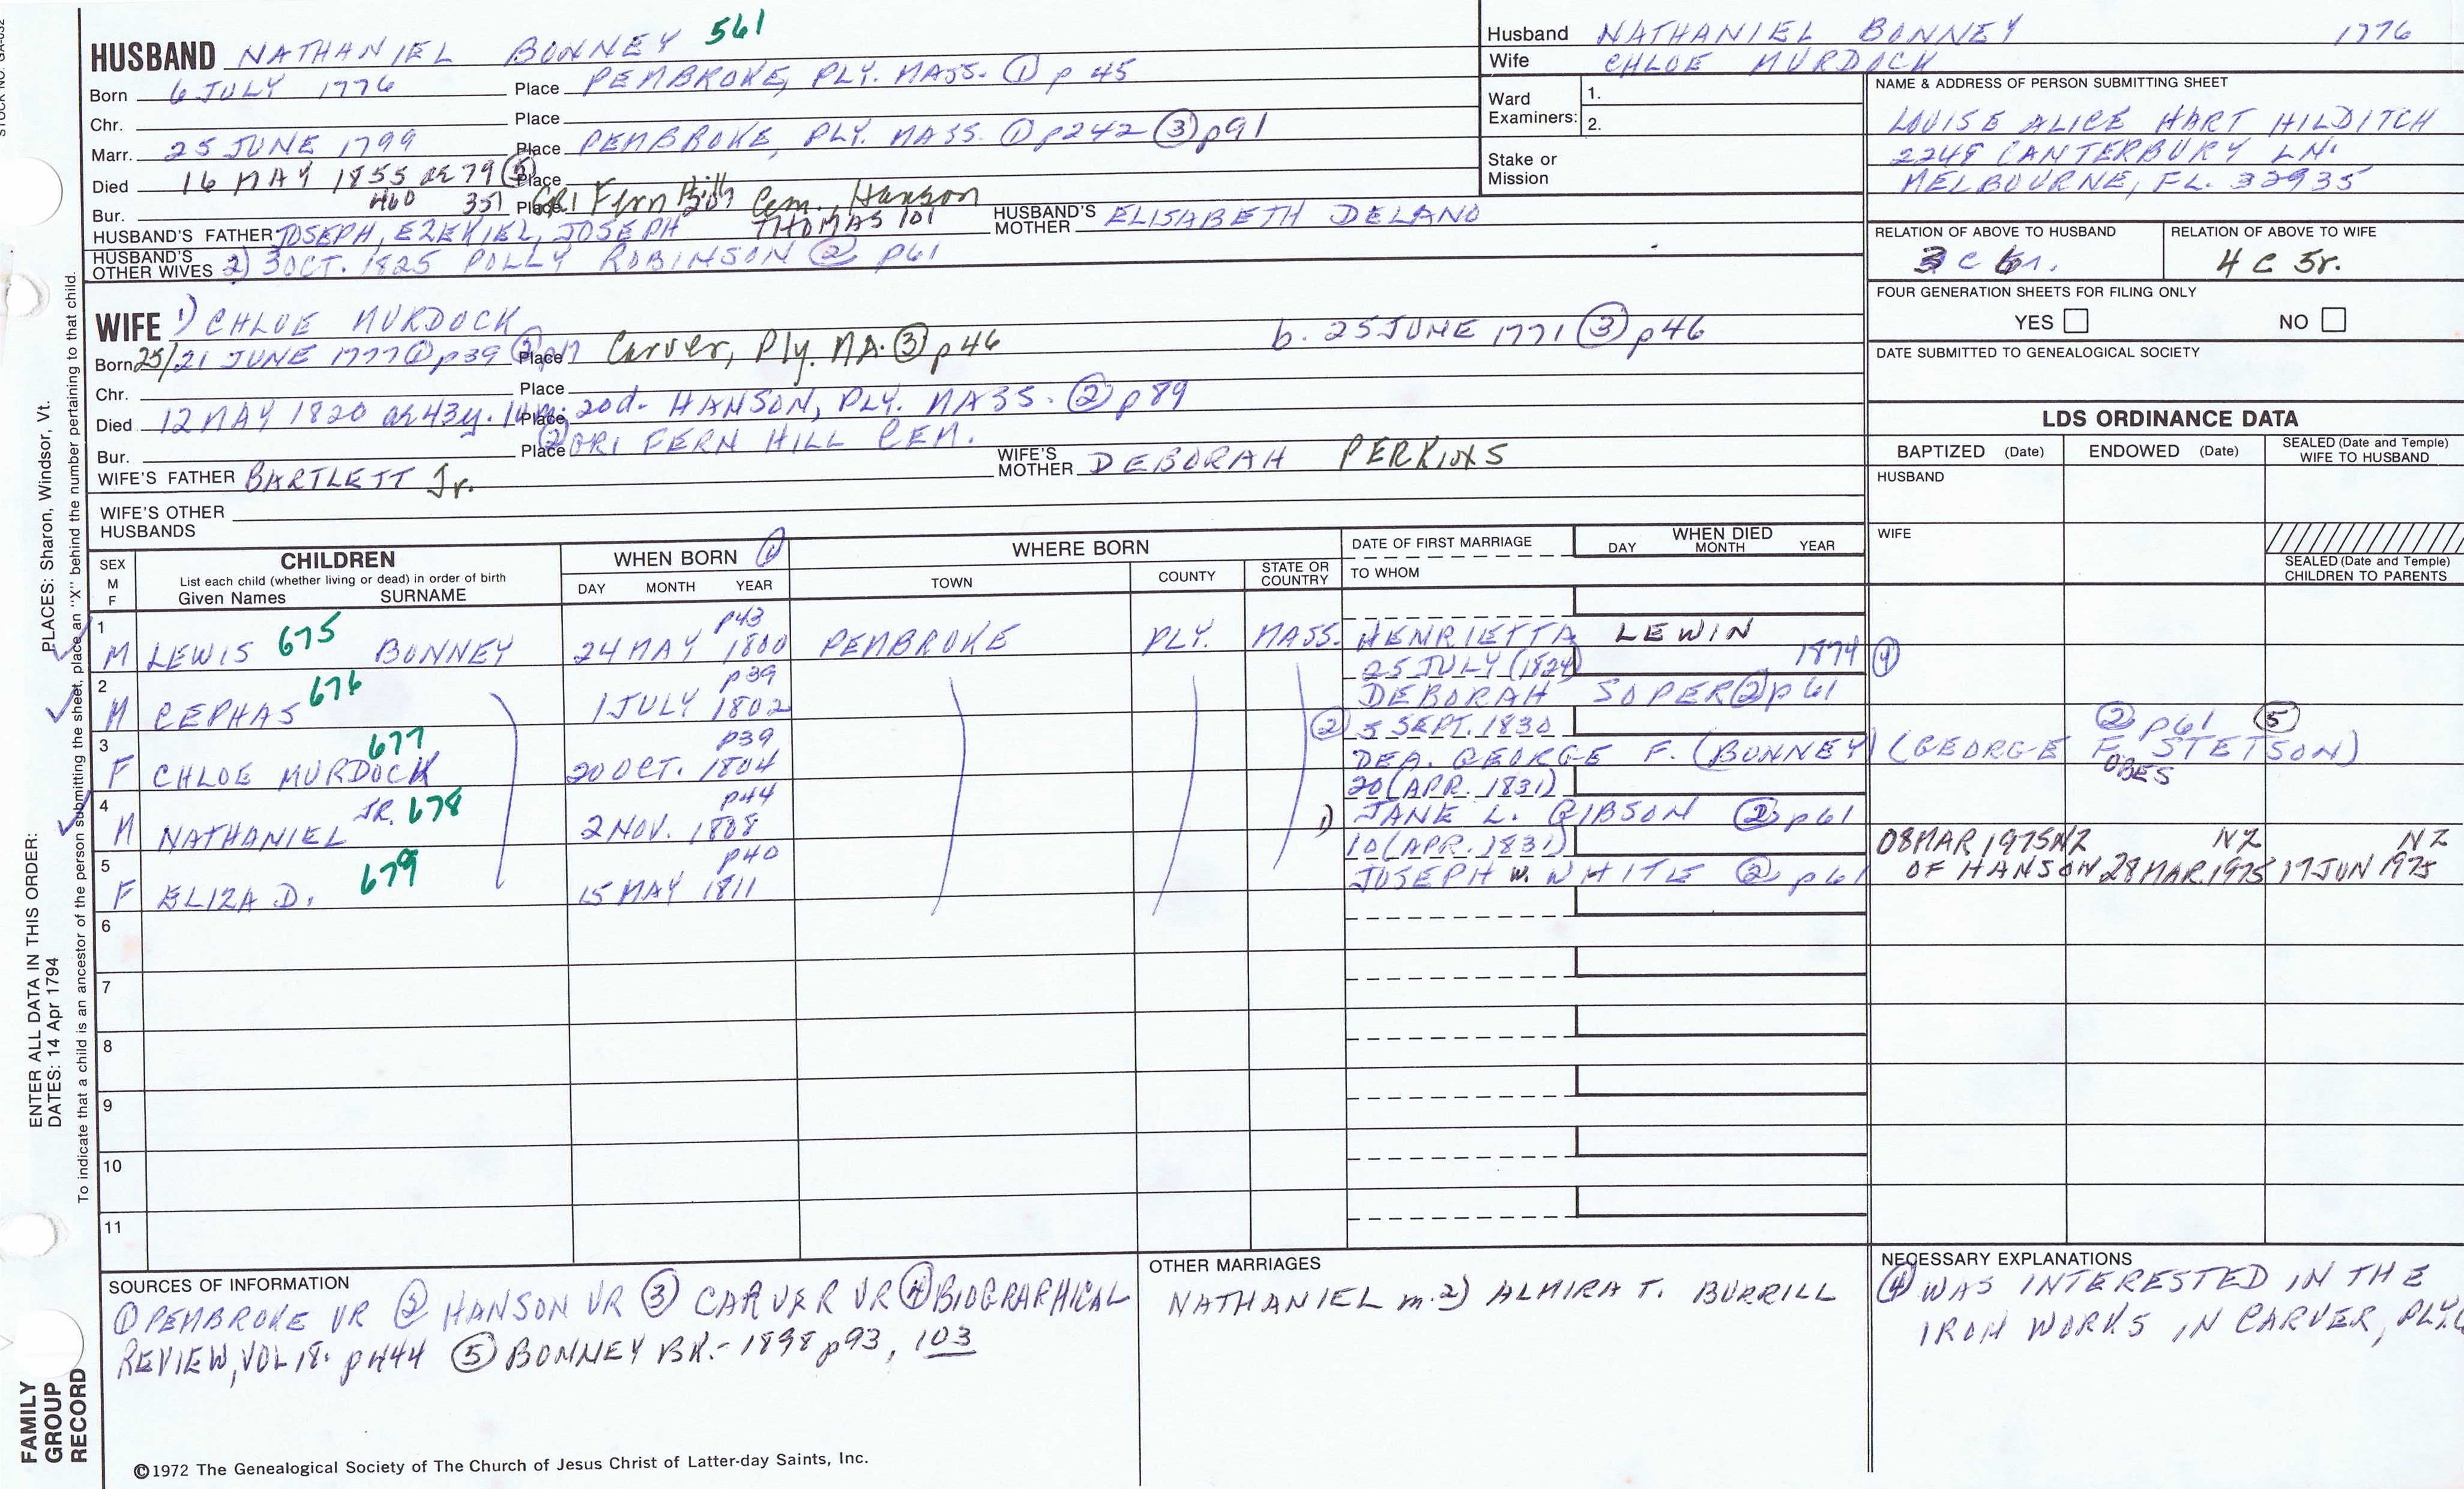 HUSBAND NATHANIEL BONNEY 561
Born 6 JULY 1776 Place PEMBROKE, PLY. MASS. ① p 45
Chr. Place
Marr. 25 JUNE 1799 Place PEMBROKE, PLY. MASS. ① p242 ③ p91
Died 16 MAY 1855 ae 79 ⑤ Place
Bur. 460 351 Place GR1 Fern Hill Cem. Hanson
HUSBAND'S FATHER JOSEPH, EZEKIEL, JOSEPH THOMAS 101 HUSBAND'S MOTHER ELISABETH DELANO
HUSBAND'S OTHER WIVES 2) 3 OCT. 1825 POLLY ROBINSON ② p61
Husband NATHANIEL BONNEY 1776
Wife CHLOE MURDOCK
Ward Examiners: 1.
2.
Stake or Mission
NAME & ADDRESS OF PERSON SUBMITTING SHEET
LOUISE ALICE HART HILDITCH
2248 CANTERBURY LN.
MELBOURNE, FL. 32935
RELATION OF ABOVE TO HUSBAND RELATION OF ABOVE TO WIFE
3 C 4 C 5r.
FOUR GENERATION SHEETS FOR FILING ONLY
YES NO
DATE SUBMITTED TO GENEALOGICAL SOCIETY
WIFE 1) CHLOE MURDOCK
Born 25/21 JUNE 1777 ① p39 Place Carver, Ply. MA. ③ p46 b. 25 JUNE 1771 ③ p46
Chr. Place
Died 12 MAY 1820 ae 43y. Place 20d. HANSON, PLY. MASS. ② p89
Bur. Place ② GR1 FERN HILL CEM.
WIFE'S FATHER BARTLETT Jr. WIFE'S MOTHER DEBORAH PERKINS
WIFE'S OTHER HUSBANDS
LDS ORDINANCE DATA
BAPTIZED (Date) ENDOWED (Date) SEALED (Date and Temple) WIFE TO HUSBAND
HUSBAND
WIFE
SEALED (Date and Temple) CHILDREN TO PARENTS
SEX M F CHILDREN List each child (whether living or dead) in order of birth Given Names SURNAME
WHEN BORN ① DAY MONTH YEAR
WHERE BORN TOWN COUNTY STATE OR COUNTRY
DATE OF FIRST MARRIAGE TO WHOM
WHEN DIED DAY MONTH YEAR
1 M LEWIS 675 BONNEY 24 MAY 1800 p43 PEMBROKE PLY. MASS. HENRIETTA LEWIN
2 M CEPHAS 676 1 JULY 1802 p39 25 JULY (1824) DEBORAH SOPER ② p61 1874 ④
3 F CHLOE MURDOCK 677 20 OCT. 1804 p39 ② 5 SEPT. 1830 DEA. GEORGE F. (BONNEY) (GEORGE F. STETSON) OBES ② p61 ⑤
4 M NATHANIEL JR. 678 2 NOV. 1808 p44 20 (APR. 1831) 1) JANE L. GIBSON ② p61
5 F ELIZA D. 679 15 MAY 1811 p40 10 (APR. 1831) JOSEPH W. WHITE ② p61 OF HANSON
08 MAR 1975 NZ NZ NZ
28 MAR 1975 17 JUN 1975
6
7
8
9
10
11
SOURCES OF INFORMATION
① PEMBROKE VR ② HANSON VR ③ CARVER VR ④ BIOGRAPHICAL
REVIEW, VOL 18. p444 ⑤ BONNEY BK.- 1898 p93, 103
OTHER MARRIAGES
NATHANIEL m. 2) ALMIRA T. BURRILL
NECESSARY EXPLANATIONS
④ WAS INTERESTED IN THE
IRON WORKS IN CARVER, PLY.
©1972 The Genealogical Society of The Church of Jesus Christ of Latter-day Saints, Inc.
FAMILY GROUP RECORD
ENTER ALL DATA IN THIS ORDER:
DATES: 14 Apr 1794 PLACES: Sharon, Windsor, Vt.
To indicate that a child is an ancestor of the person submitting the sheet, place an "X" behind the number pertaining to that child.